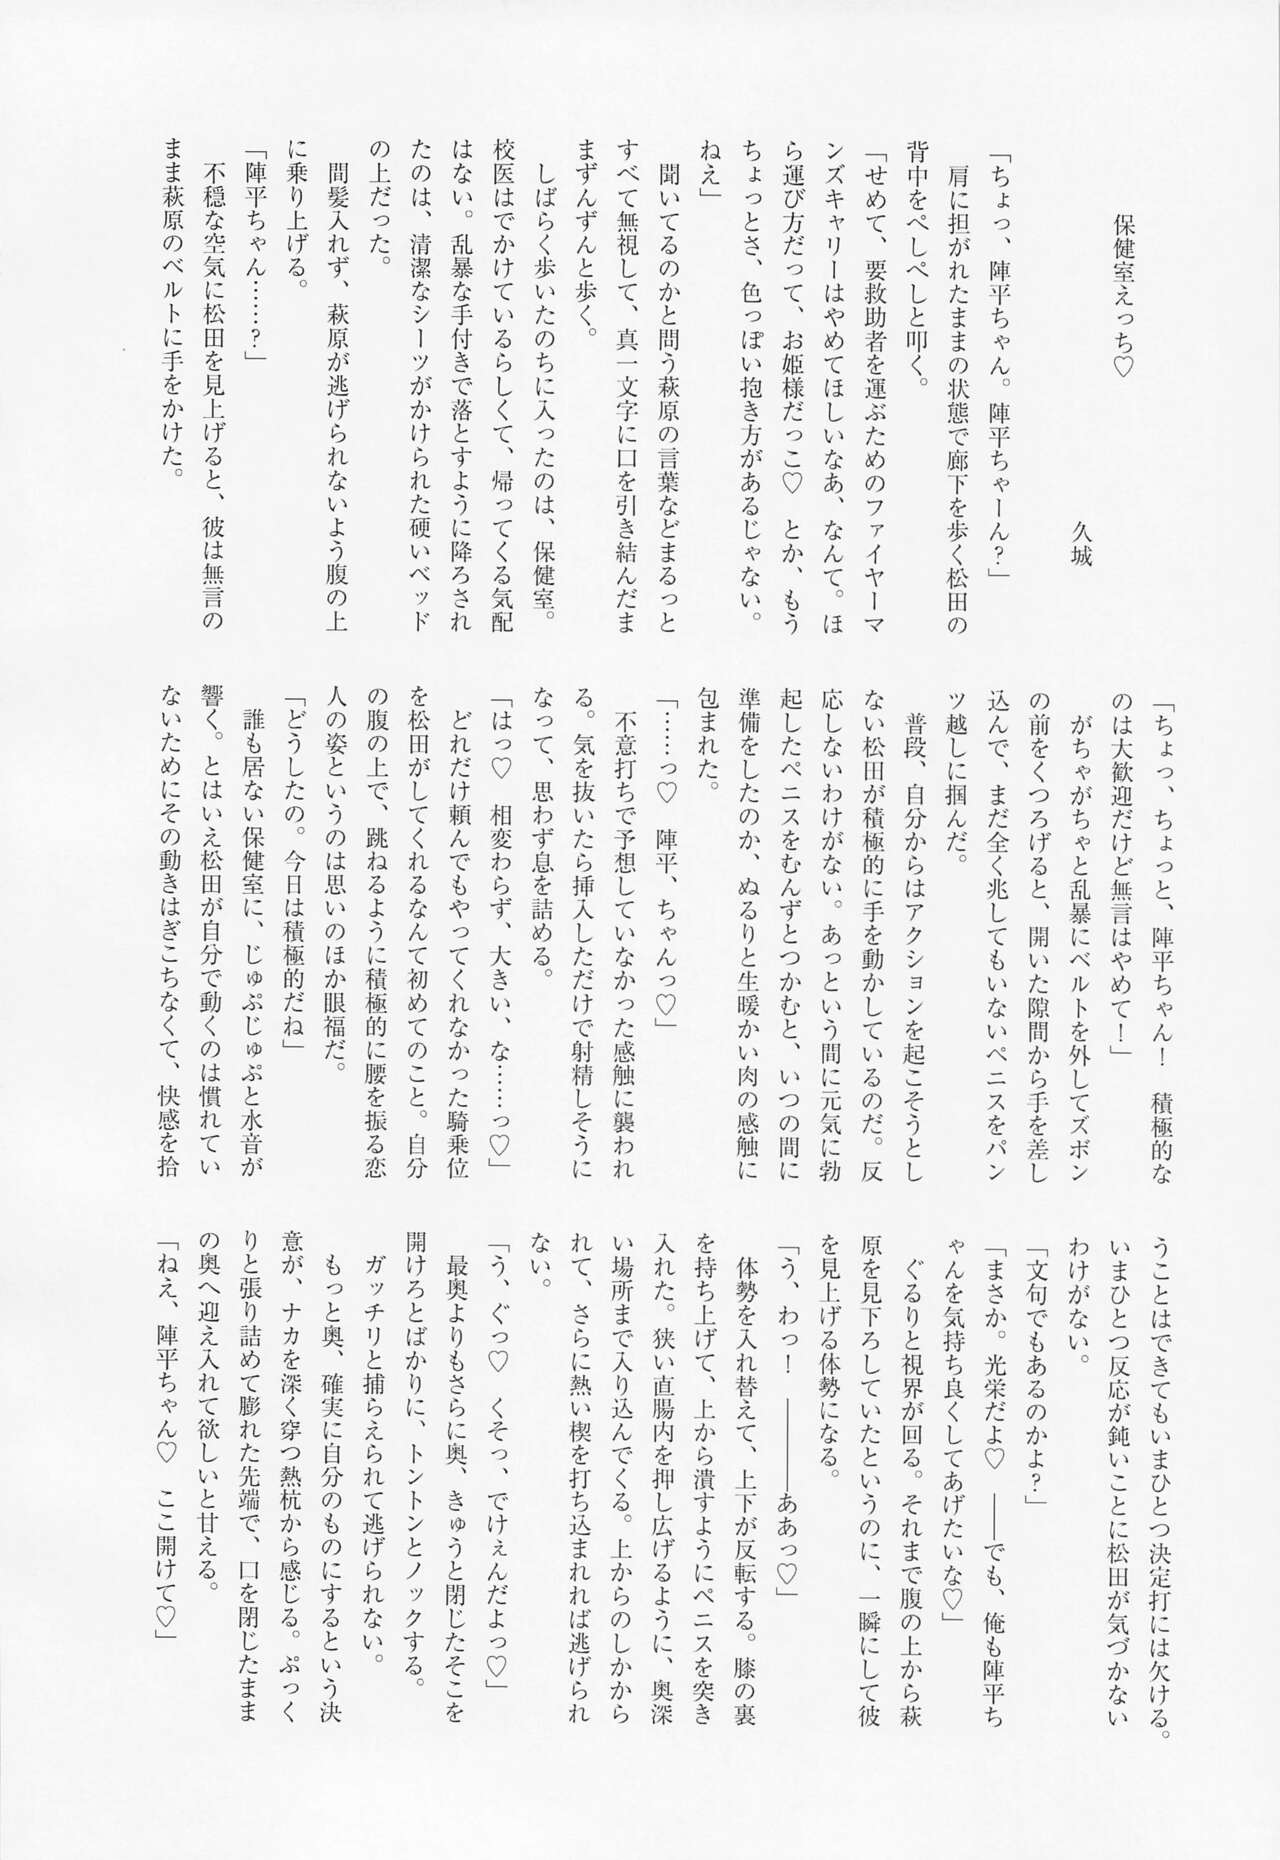 保健室えっち♡
久城
「ちょっ、陣平ちゃん。陣平ちゃーん？」
肩に担がれたままの状態で廊下を歩く松田の
背中をぺしぺしと叩く。
「せめて、要救助者を運ぶためのファイヤーマ
ンズキャリーはやめてほしいなあ、なんて。ほ
ら運び方だって、お姫様だっこ♡　とか、もう
ちょっとさ、色っぽい抱き方があるじゃない。
ねえ」
聞いてるのかと問う萩原の言葉などまるっと
すべて無視して、真一文字に口を引き結んだま
まずんずんと歩く。
しばらく歩いたのちに入ったのは、保健室。
校医はでかけているらしくて、帰ってくる気配
はない。乱暴な手付きで落とすように降ろされ
たのは、清潔なシーツがかけられた硬いベッド
の上だった。
間髪入れず、萩原が逃げられないよう腹の上
に乗り上げる。
「陣平ちゃん……？」
不穏な空気に松田を見上げると、彼は無言の
まま萩原のベルトに手をかけた。
「ちょっ、ちょっと、陣平ちゃん！　積極的な
のは大歓迎だけど無言はやめて！」
がちゃがちゃと乱暴にベルトを外してズボン
の前をくつろげると、開いた隙間から手を差し
込んで、まだ全く兆してもいないペニスをパン
ツ越しに掴んだ。
普段、自分からはアクションを起こそうとし
ない松田が積極的に手を動かしているのだ。反
応しないわけがない。あっという間に元気に勃
起したペニスをむんずとつかむと、いつの間に
準備をしたのか、ぬるりと生暖かい肉の感触に
包まれた。
「……っ♡　陣平、ちゃんっ♡」
不意打ちで予想していなかった感触に襲われ
る。気を抜いたら挿入しただけで射精しそうに
なって、思わず息を詰める。
「はっ♡　相変わらず、大きい、な……っ♡」
どれだけ頼んでもやってくれなかった騎乗位
を松田がしてくれるなんて初めてのこと。自分
の腹の上で、跳ねるように積極的に腰を振る恋
人の姿というのは思いのほか眼福だ。
「どうしたの。今日は積極的だね」
誰も居ない保健室に、じゅぷじゅぷと水音が
響く。とはいえ松田が自分で動くのは慣れてい
ないためにその動きはぎこちなくて、快感を拾
うことはできてもいまひとつ決定打には欠ける。
いまひとつ反応が鈍いことに松田が気づかない
わけがない。
「文句でもあるのかよ？」
「まさか。光栄だよ♡　――でも、俺も陣平ち
ゃんを気持ち良くしてあげたいな♡」
ぐるりと視界が回る。それまで腹の上から萩
原を見下ろしていたというのに、一瞬にして彼
を見上げる体勢になる。
「う、わっ！　――――ああっ♡」
体勢を入れ替えて、上下が反転する。膝の裏
を持ち上げて、上から潰すようにペニスを突き
入れた。狭い直腸内を押し広げるように、奥深
い場所まで入り込んでくる。上からのしかから
れて、さらに熱い楔を打ち込まれれば逃げられ
ない。
「う、ぐっ♡　くそっ、でけぇんだよっ♡」
最奥よりもさらに奥、きゅうと閉じたそこを
開けろとばかりに、トントンとノックする。
ガッチリと捕らえられて逃げられない。
もっと奥、確実に自分のものにするという決
意が、ナカを深く穿つ熱杭から感じる。ぷっく
りと張り詰めて膨れた先端で、口を閉じたまま
の奥へ迎え入れて欲しいと甘える。
「ねえ、陣平ちゃん♡　ここ開けて♡」